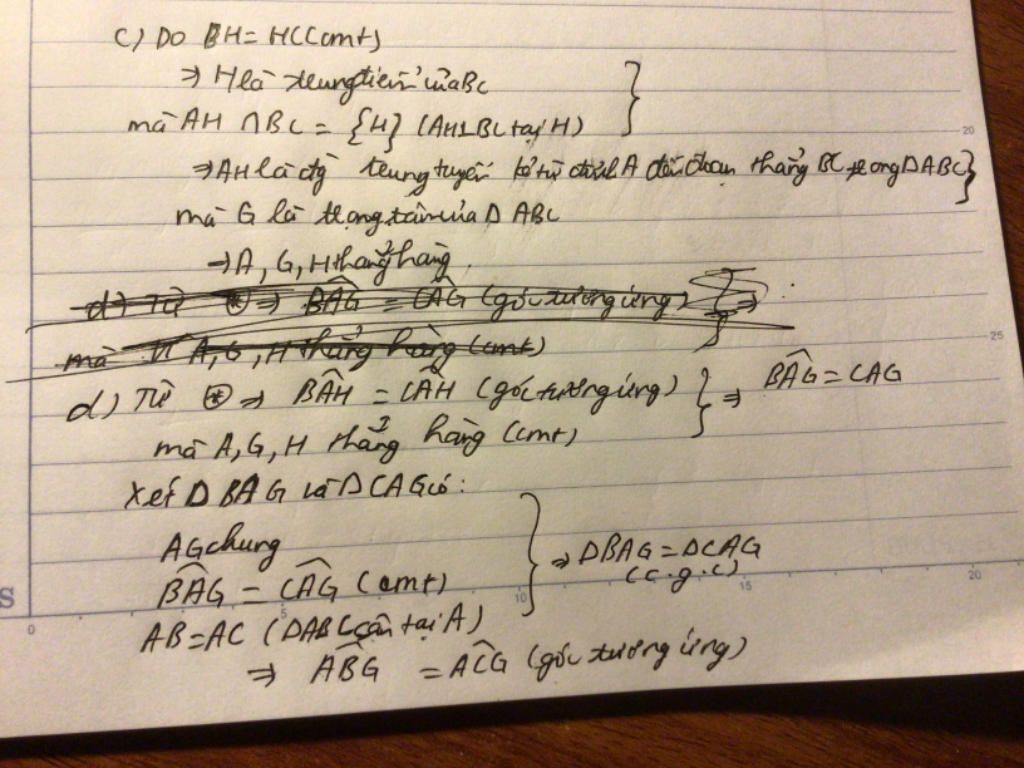 c) Do BH = HC (cmt)
⇒ H là trung điểm của BC
mà AH ∩ BC = {H} (AH⊥BC tại H)
⇒ AH là đg trung tuyến kẻ từ đỉnh A đến đoạn thẳng BC trong Δ ABC
mà G là trọng tâm của Δ ABC
⇒ A, G, H thẳng hàng.
d) Từ ⊛ ⇒ BÂG = CÂG (góc tương ứng) ⇒
mà A, G, H thẳng hàng (cmt)
d) Từ ⊛ ⇒ BÂH = CÂH (góc tương ứng) ⇒ BÂG = CAG
mà A, G, H thẳng hàng (cmt)
Xét Δ BAG và Δ CAG có:
AG chung
BÂG = CÂG (cmt) ⇒ ΔBAG = ΔCAG
(c.g.c)
AB = AC (ΔABC cân tại A)
⇒ AB̂G = AĈG (góc tương ứng)
S
0 5 10 15 20
20
25